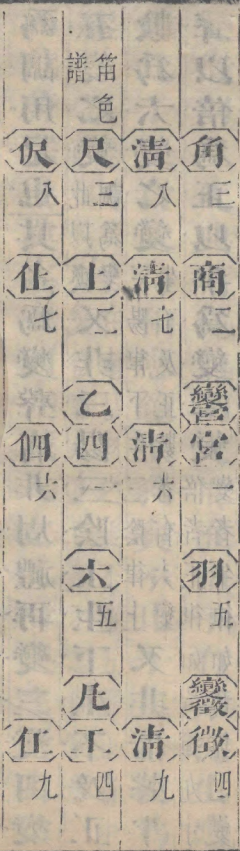 角三 商二 變宮 宮一 羽五 變徵 徵四
清八 清七 清六 清九
笛色譜 尺三 上二 乙 四一 六五 凡 工四
伬八 仩七 𠆾六 仜九